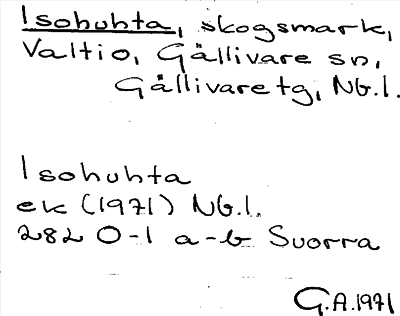 Isohuhta, skogsmark,
Valtio, Gällivare sn,
Gällivare tg, Nb.l.
Isohuhta
ek (1971) Nb.l.
28L 0-1 a-b Suorra
G.A. 1971